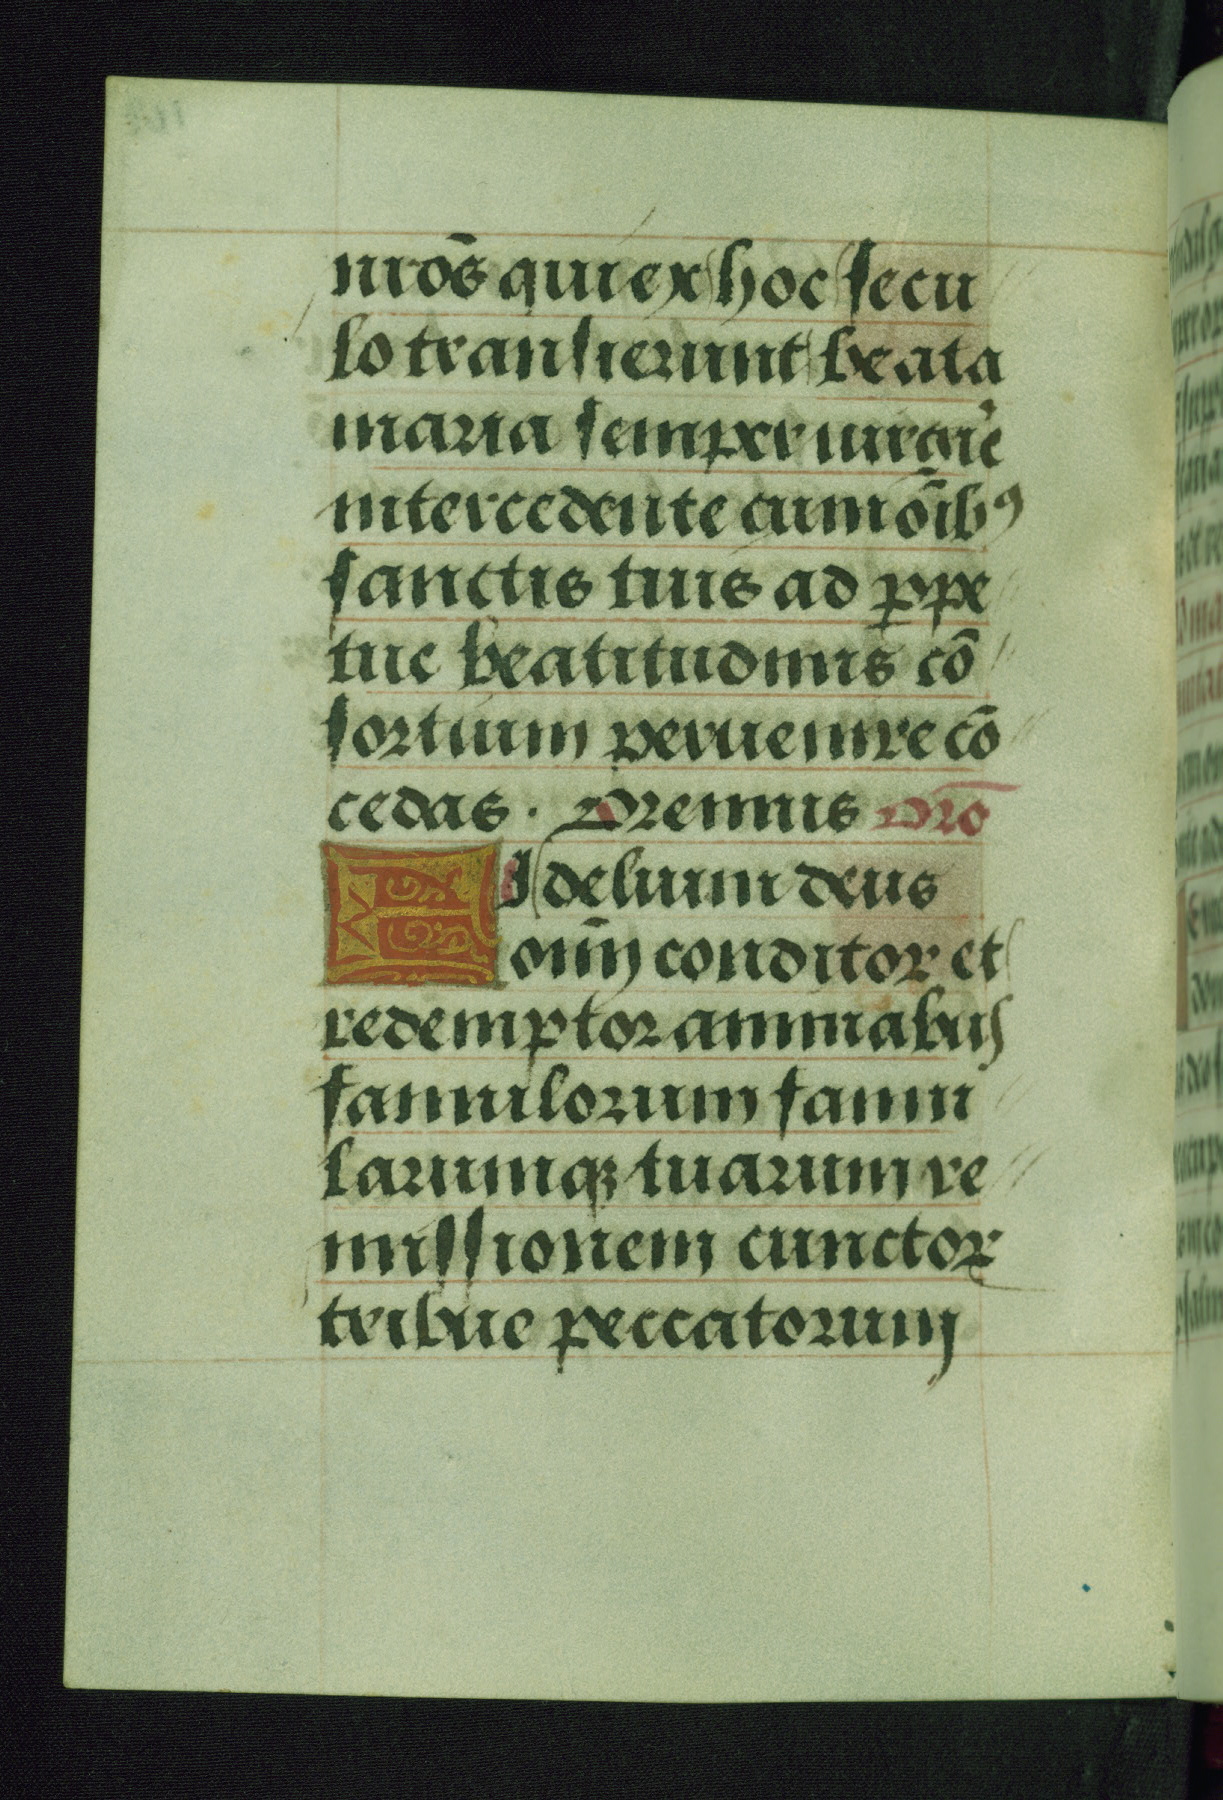 niros̄ qui ex hoc secu
lo transierunt beata
maria semper uirgīe
intercedente cum oīb⁹
sanctis tuis ad ꝑpe
tue beatitudinis cō
sortium peruenire cō
cedas. Oremus Oro
Fidelium deus
oīm conditor et
redemptor animabus
famulorum famu
larumqꝫ tuarum re
missionem cunctor
tribue peccatorum